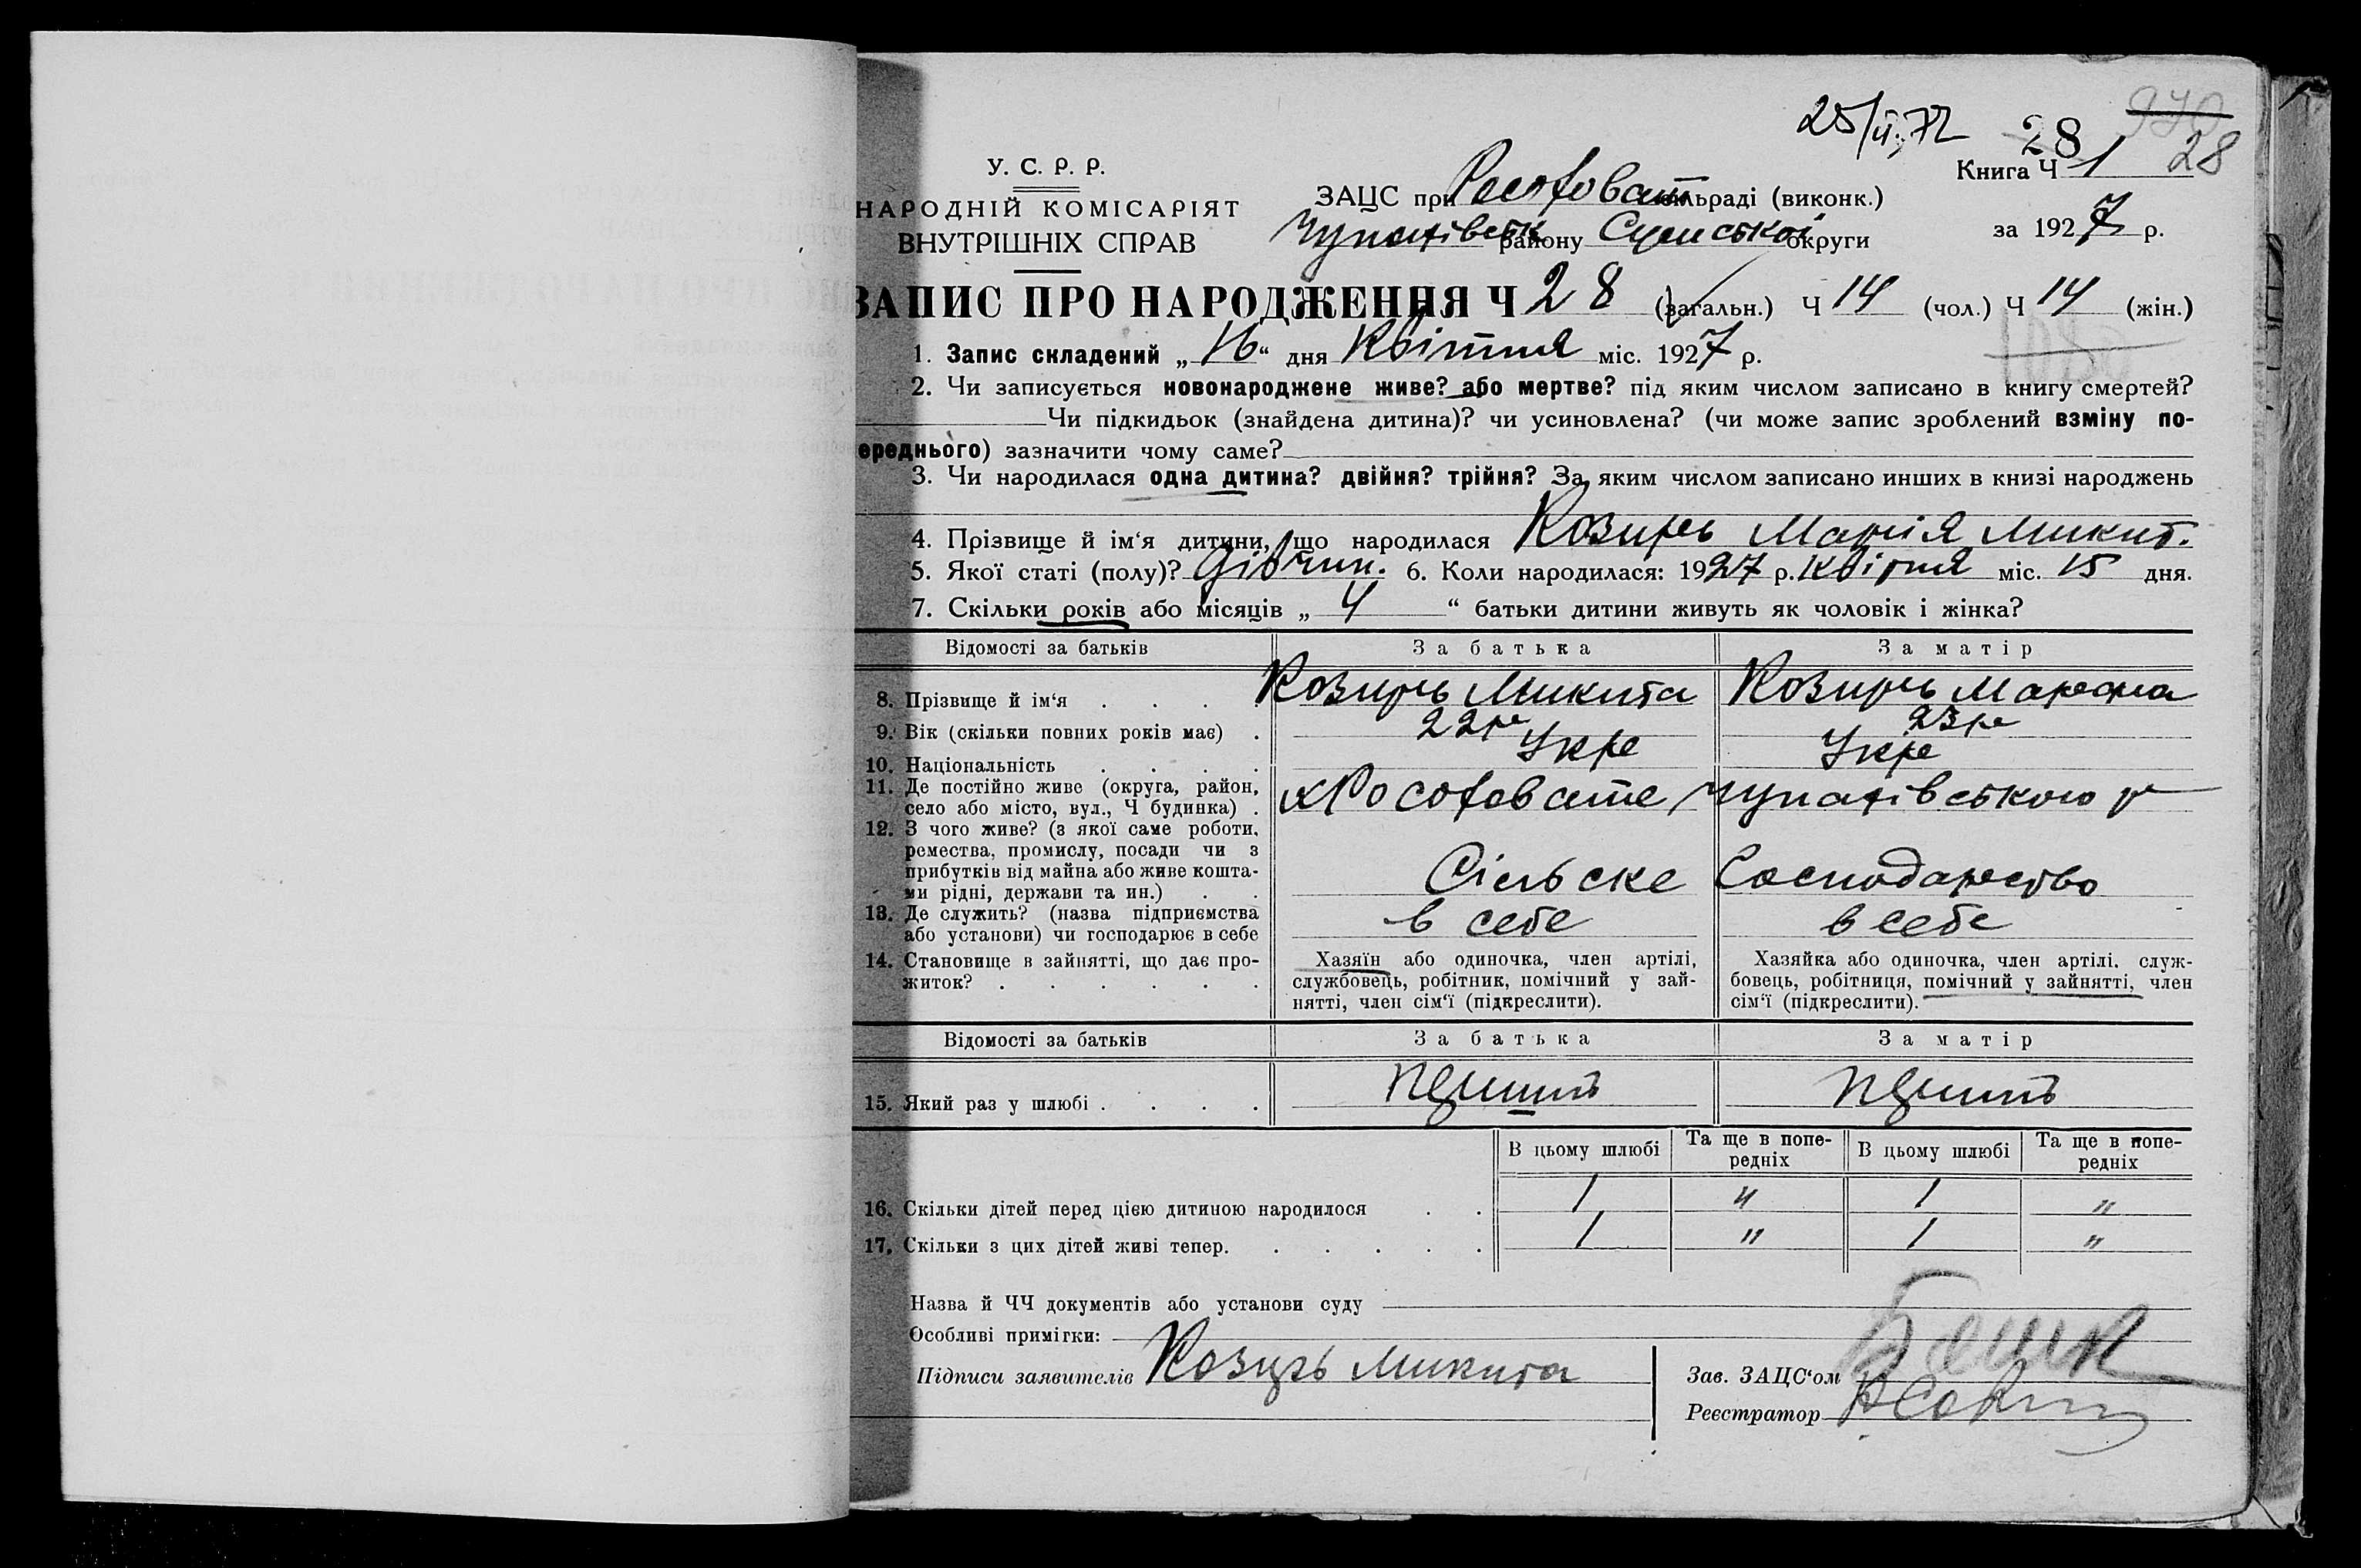 25/VI.72 28 970
У. С. Р. Р. Книга Ч 1 28
НАРОДНІЙ КОМІСАРІЯТ ЗАЦС при сільраді (виконк.)
ВНУТРІШНІХ СПРАВ району Сумської округи за 1927 р.
ЗАПИС ПРО НАРОДЖЕННЯ Ч 28 (загальн.) Ч 14 (чол.) Ч 14 (жін.)
1. Запис складений „16“ дня Квітня міс. 1927 р.
2. Чи записується новонароджене живе? або мертве? під яким числом записано в книгу смертей?
Чи підкидьок (знайдена дитина)? чи усиновлена? (чи може запис зроблений взміну по-
ереднього) зазначити чому саме?
3. Чи народилася одна дитина? двійня? трійня? За яким числом записано инших в книзі народжень
4. Прізвище й ім‘я дитини, що народилася Козирь Марія Микит.
5. Якої статі (полу)? Дівчин. 6. Коли народилася: 1927 р. квітня міс. 15 дня.
7. Скільки років або місяців „ 4 “ батьки дитини живуть як чоловік і жінка?
Відомості за батьків За батька За матір
8. Прізвище й ім‘я . . . . Козирь Микита Козирь
9. Вік (скільки повних років має) . 22 р 23 р
10. Національність . . . . Укр Укр
11. Де постійно живе (округа, район,
село або місто, вул., Ч будинка) .
12. З чого живе? (з якої саме роботи,
ремества, промислу, посади чи з
прибутків від майна або живе кошта-
ми рідні, держави та ин.) . . Сільське Господарство
13. Де служить? (назва підприємства
або установи) чи господарює в себе в себе в себе
14. Становище в зайнятті, що дає про-
житок? . . . . . .
Хазяїн або одиночка, член артілі,
службовець, робітник, помічний у зай-
нятті, член сім‘ї (підкреслити).
Хазяйка або одиночка, член артілі. служ-
бовець, робітниця, помічний у зайнятті, член
сім‘ї (підкреслити).
Відомості за батьків За батька За матір
15. Який раз у шлюбі . . . .
В цьому шлюбі Та ще в попе-
редніх В цьому шлюбі Та ще в попе-
редніх
16. Скільки дітей перед цією дитиною народилося . . 1 " 1 "
17. Скільки з цих дітей живі тепер. . . . . . 1 " 1 "
Назва й ЧЧ документів або установи суду
Особливі примітки:
Підписи заявителів Козирь Микита Зав. ЗАЦС‘ом
Реєстратор